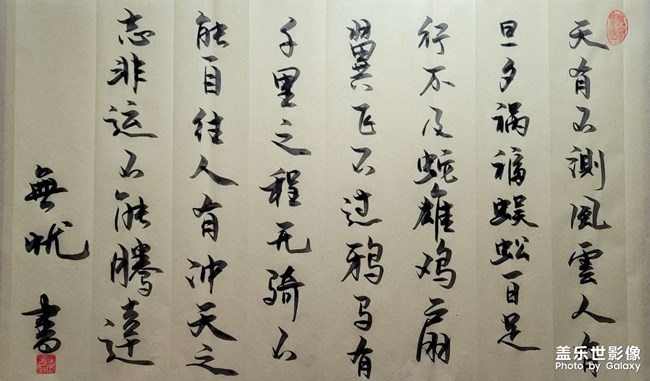 天有不測風雲人有
旦夕祸福蜈蚣百足
行不及蛇雄鸡扇
翼飞不过鸦马有
千里之程无骑不
能自往人有冲天之
志非运不能腾達
無忧書
盖乐世影像
Photo by Galaxy